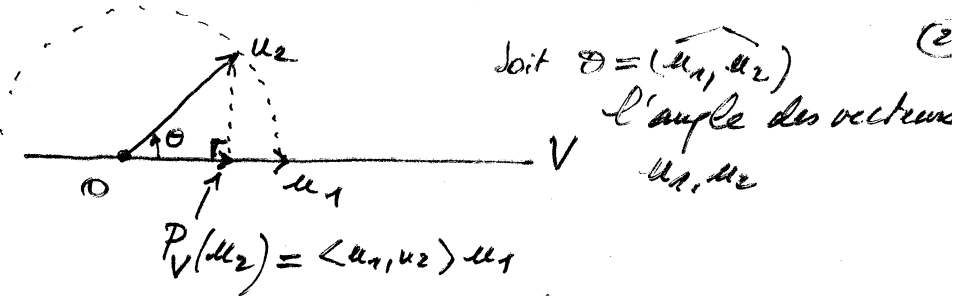 (2
u₂
Soit θ = (u₁, u₂)
l'angle des vecteurs
u₁, u₂
θ
V
O
u₁
P_V(u₂) = <u₁, u₂> u₁